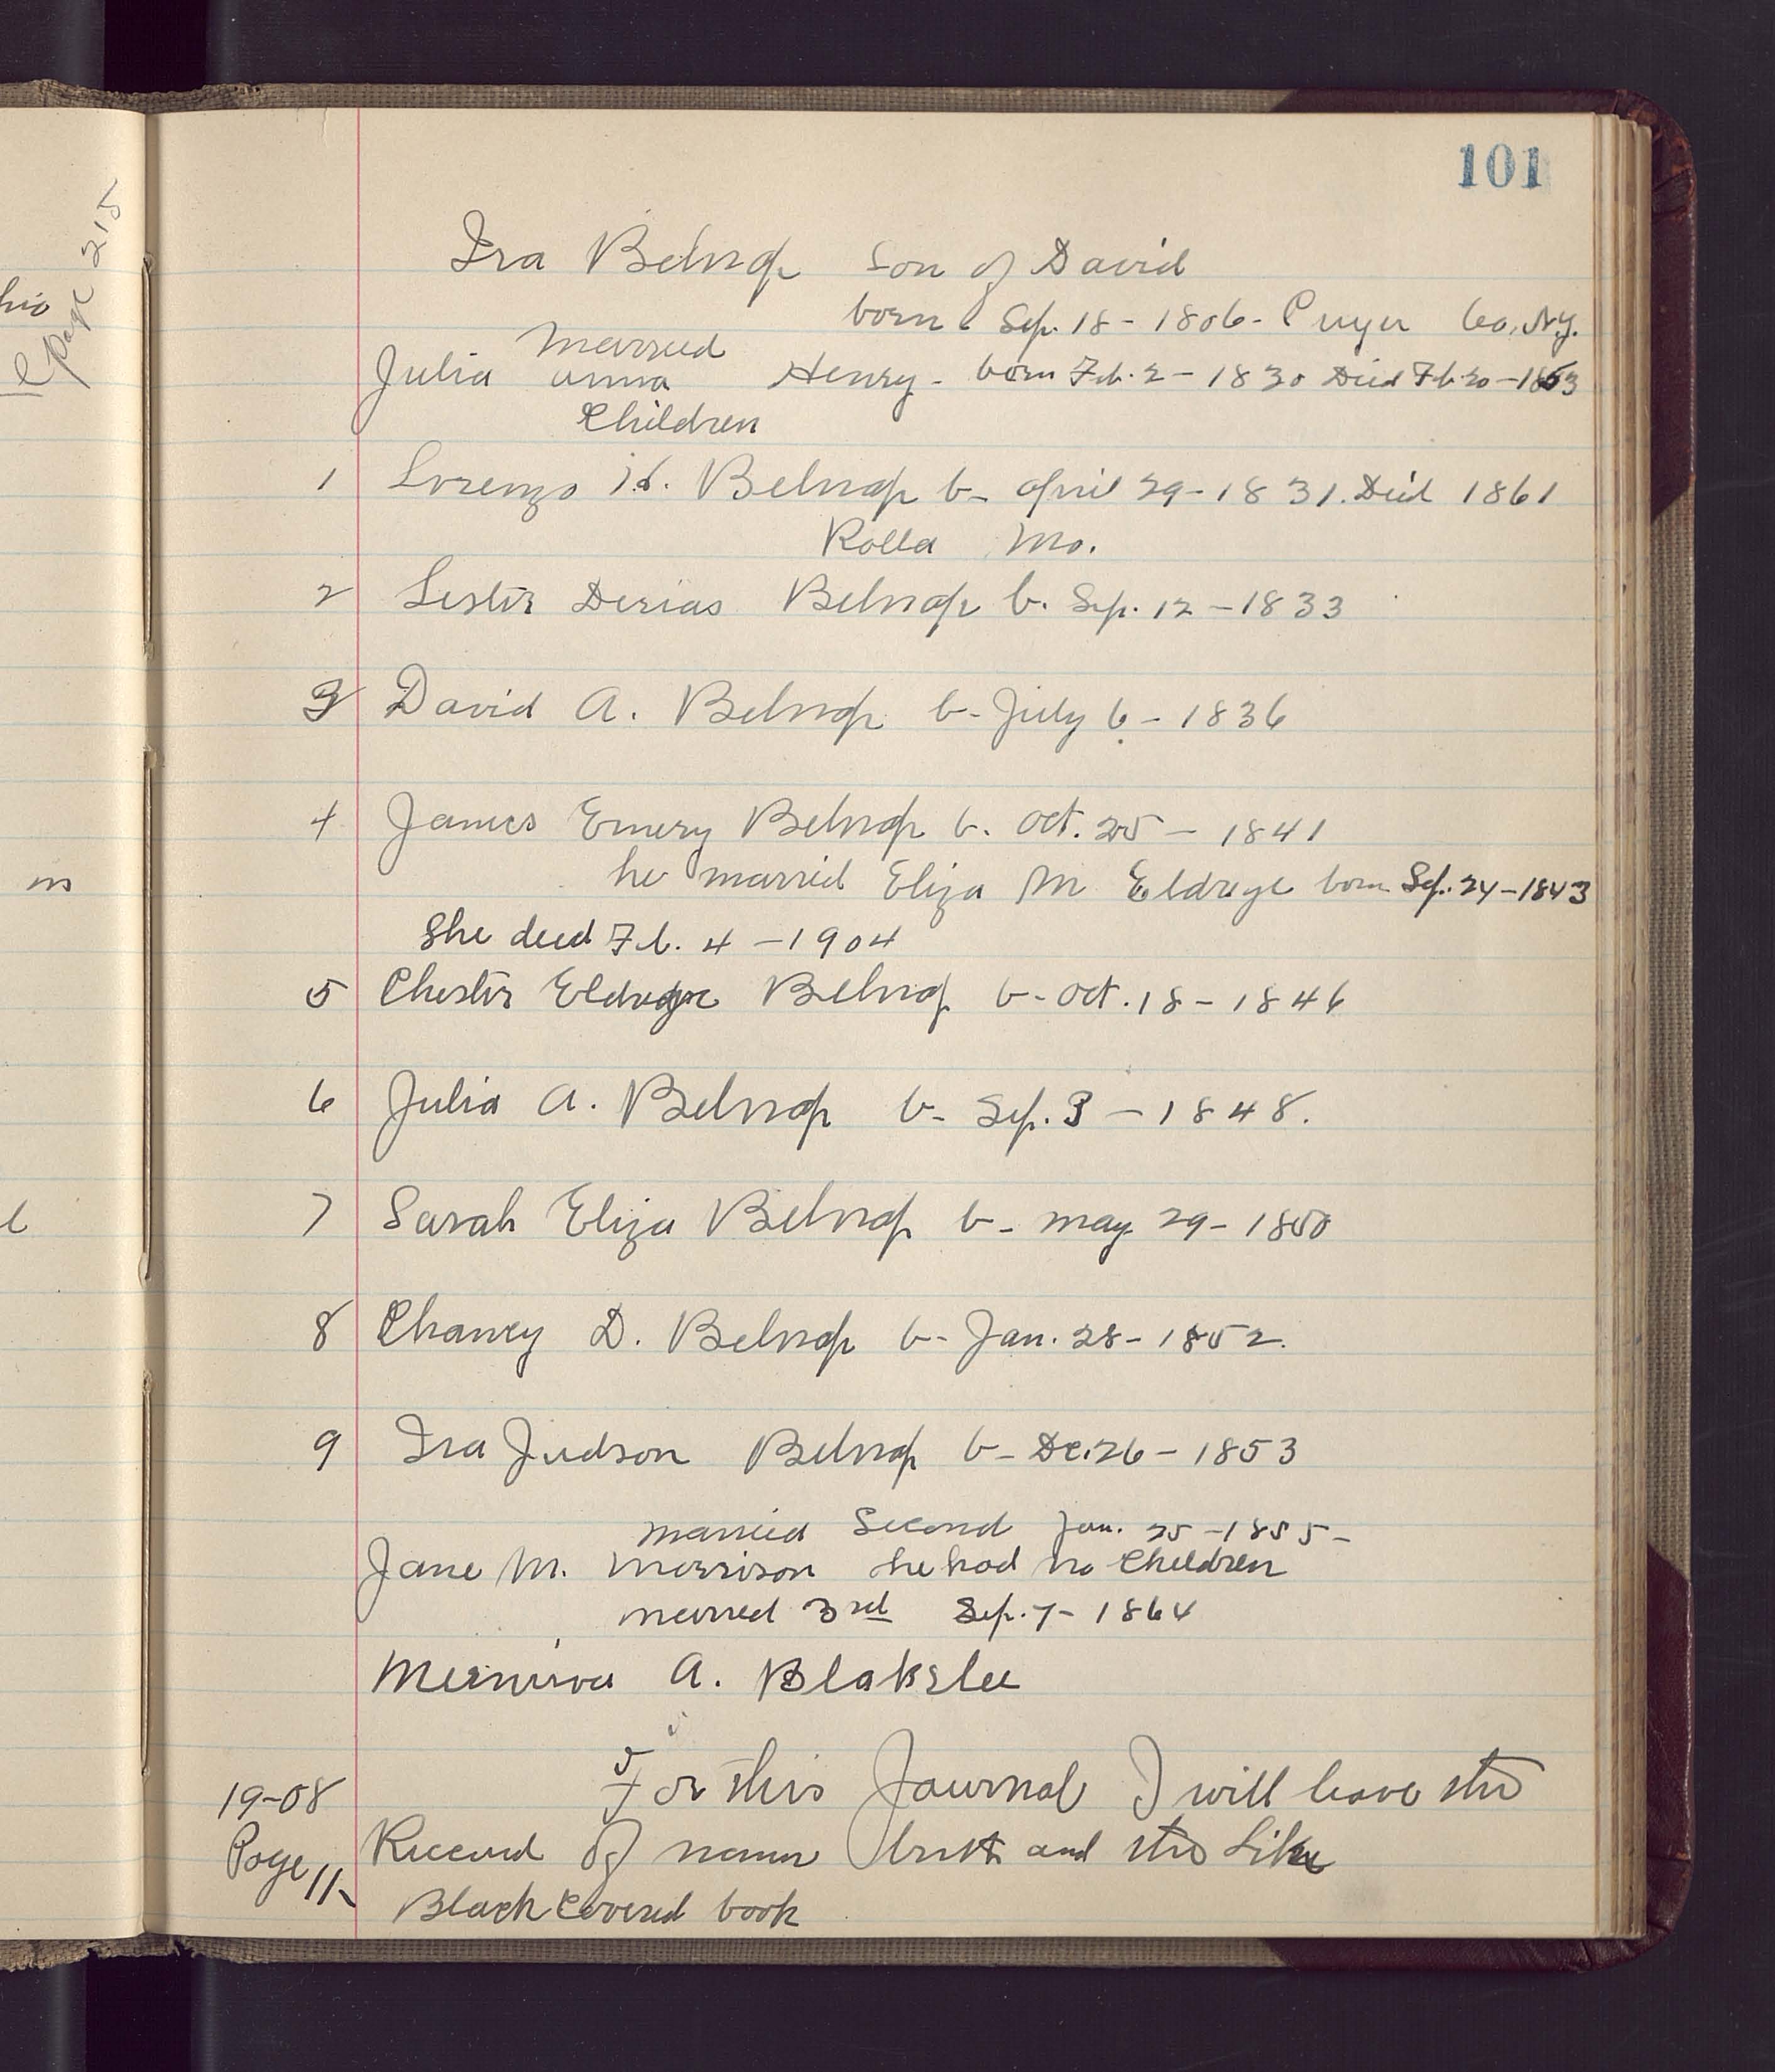 101
Ira Belnap son of David
born Sep. 18 - 1806 - Co, N.y.
Married
Julia anna Henry - born Feb. 2 - 1830 Died Fb 20 - 1853
Children
1 Lorenzo H. Belnap b - april 29 - 1831. Died 1861
Rolla Mo.
2 Lester Derias Belnap b. Sep. 12 - 1833
3 David A. Belnap b - July 6 - 1836
4 James Emery Belnap b. Oct. 25 - 1841
he married Eliza M Eldrege born Sep. 24 - 1843
She died Fb. 4 - 1904
5 Chester Eldrege Belnap b - Oct. 18 - 1846
6 Julia A. Belnap b - Sep. 3 - 1848.
7 Sarah Eliza Belnap b - may 29 - 1850
8 Chancy D. Belnap b - Jan. 28 - 1852.
9 Ira Judson Belnap b - De. 26 - 1853
married Second Jan. 25 - 1855 -
Jane M. Morrison she had no Children
married 3rd Sep. 7 - 1864
A. Blakslee
For this Journal I will leave the
19-08
Record of name and the Like
Page 11
Black Covered book
Page 215